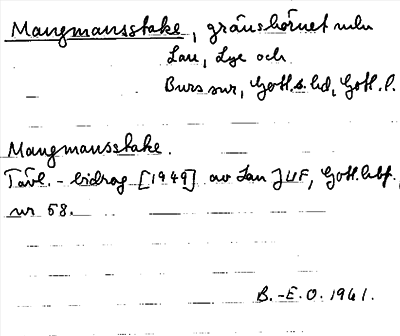 Mangmansstake, gränshörnet mln
Lau, Lye och
Burs snr, Gotl. s. hd, Gotl. l.
Mangmansstake.
Tävl.-bidrag [1949] av Lau JUF, Gotl. lbf.,
nr 58.
B.-E.O. 1961.